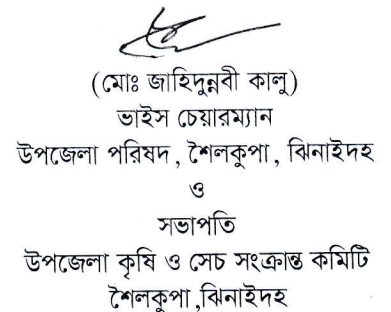 (মোঃ জাহিদুন্নবী কালু)
ভাইস চেয়ারম্যান
উপজেলা পরিষদ, শৈলকুপা, ঝিনাইদহ
ও
সভাপতি
উপজেলা কৃষি ও সেচ সংক্রান্ত কমিটি
শৈলকুপা,ঝিনাইদহ